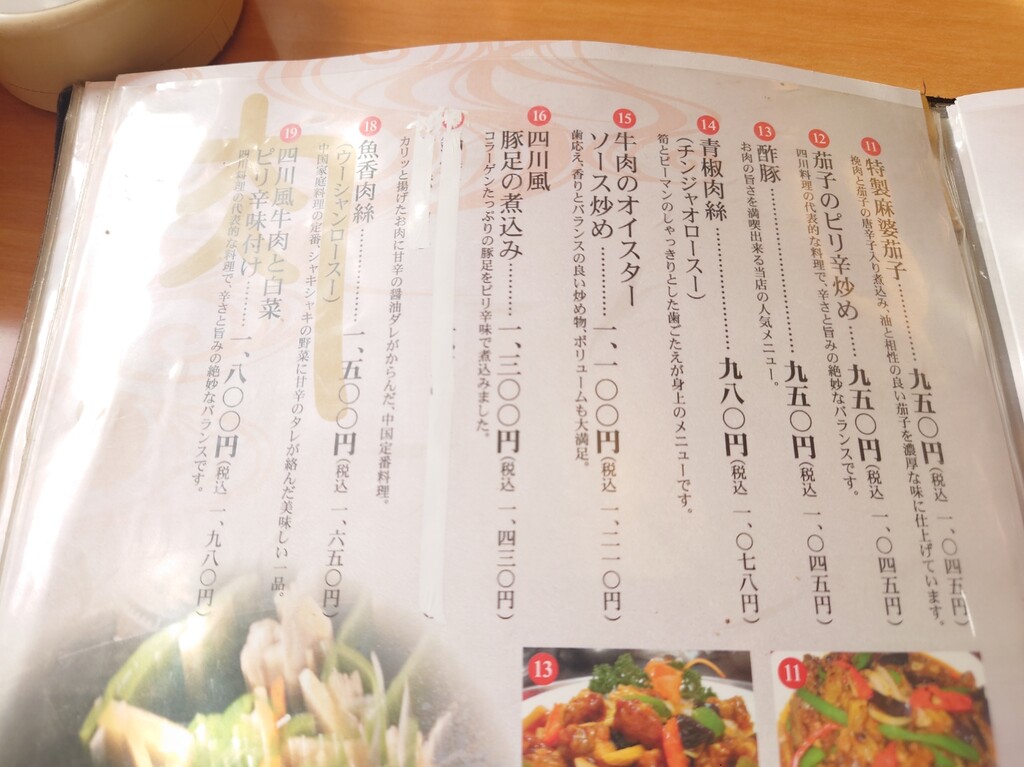 11
特製麻婆茄子………九五〇円(税込 一、〇四五円)
挽肉と茄子の唐辛子入り煮込み、油と相性の良い茄子を濃厚な味に仕上げています。
12
茄子のピリ辛炒め……九五〇円(税込 一、〇四五円)
四川料理の代表的な料理で、辛さと旨みの絶妙なバランスです。
13
酢豚………………九五〇円(税込 一、〇四五円)
お肉の旨さを満喫出来る当店の人気メニュー。
14
青椒肉絲……………九八〇円(税込 一、〇七八円)
(チンジャオロースー)
筍とピーマンのしゃっきりとした歯ごたえが身上のメニューです。
15
牛肉のオイスター
ソース炒め…………一、一〇〇円(税込 一、二一〇円)
歯応え、香りとバランスの良い炒め物、ボリュームも大満足。
16
四川風
豚足の煮込み………一、三〇〇円(税込 一、四三〇円)
コラーゲンたっぷりの豚足をピリ辛味で煮込みました。
カリッと揚げたお肉に甘辛の醤油ダレがからんだ、中国定番料理。
18
魚香肉絲……………一、五〇〇円(税込 一、六五〇円)
(ウーシャンロースー)
中国家庭料理の定番、シャキシャキの野菜に甘辛のタレが絡んだ美味しい一品。
19
四川風牛肉と白菜
ピリ辛味付け………一、八〇〇円(税込 一、九八〇円)
四川料理の代表的な料理で、辛さと旨みの絶妙なバランスです。
13
11